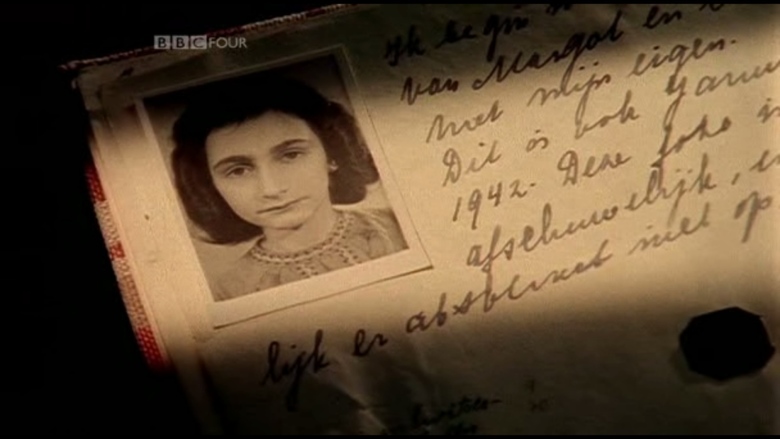 BBC FOUR
Ik begin
van Margot en
met mijn eigen.
Dit is ook
1942. Deze foto
afschuwelijk,
lijk er absoluut niet op